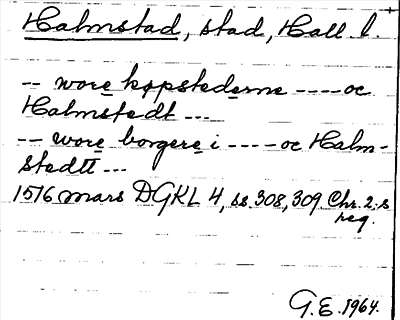 Halmstad, stad, Hall. l.
-- wore køpstederne ---- oc
Halmstedt ---
-- wore borgere i ---- oc Halm-
stedtt ---
1516 mars DGKL 4, ss. 308, 309. Chr. 2:s
reg.
G.E. 1964.